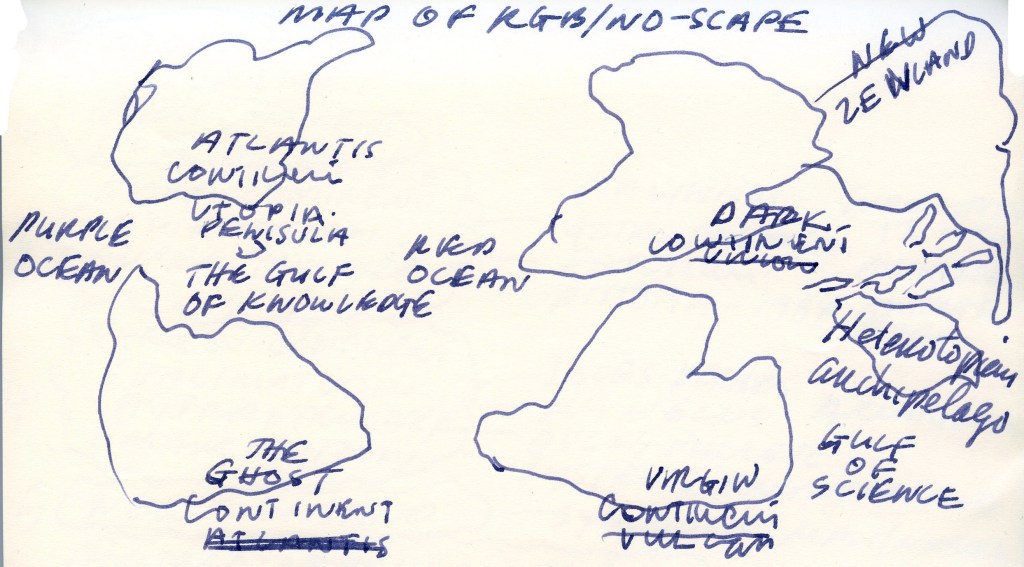 MAP OF RGB/NO-SCAPE
NEW
ZEALAND
ATLANTIS
CONTINENT
UTOPIA
PENISULA
PURPLE
OCEAN
THE GULF
OF KNOWLEDGE
RED
OCEAN
DARK
CONTINENT
Heterotopian
archipelago
GULF
OF
SCIENCE
THE
GHOST
CONTINENT
ATLANTIS
VIRGIN
CONTINENT
VULCAN